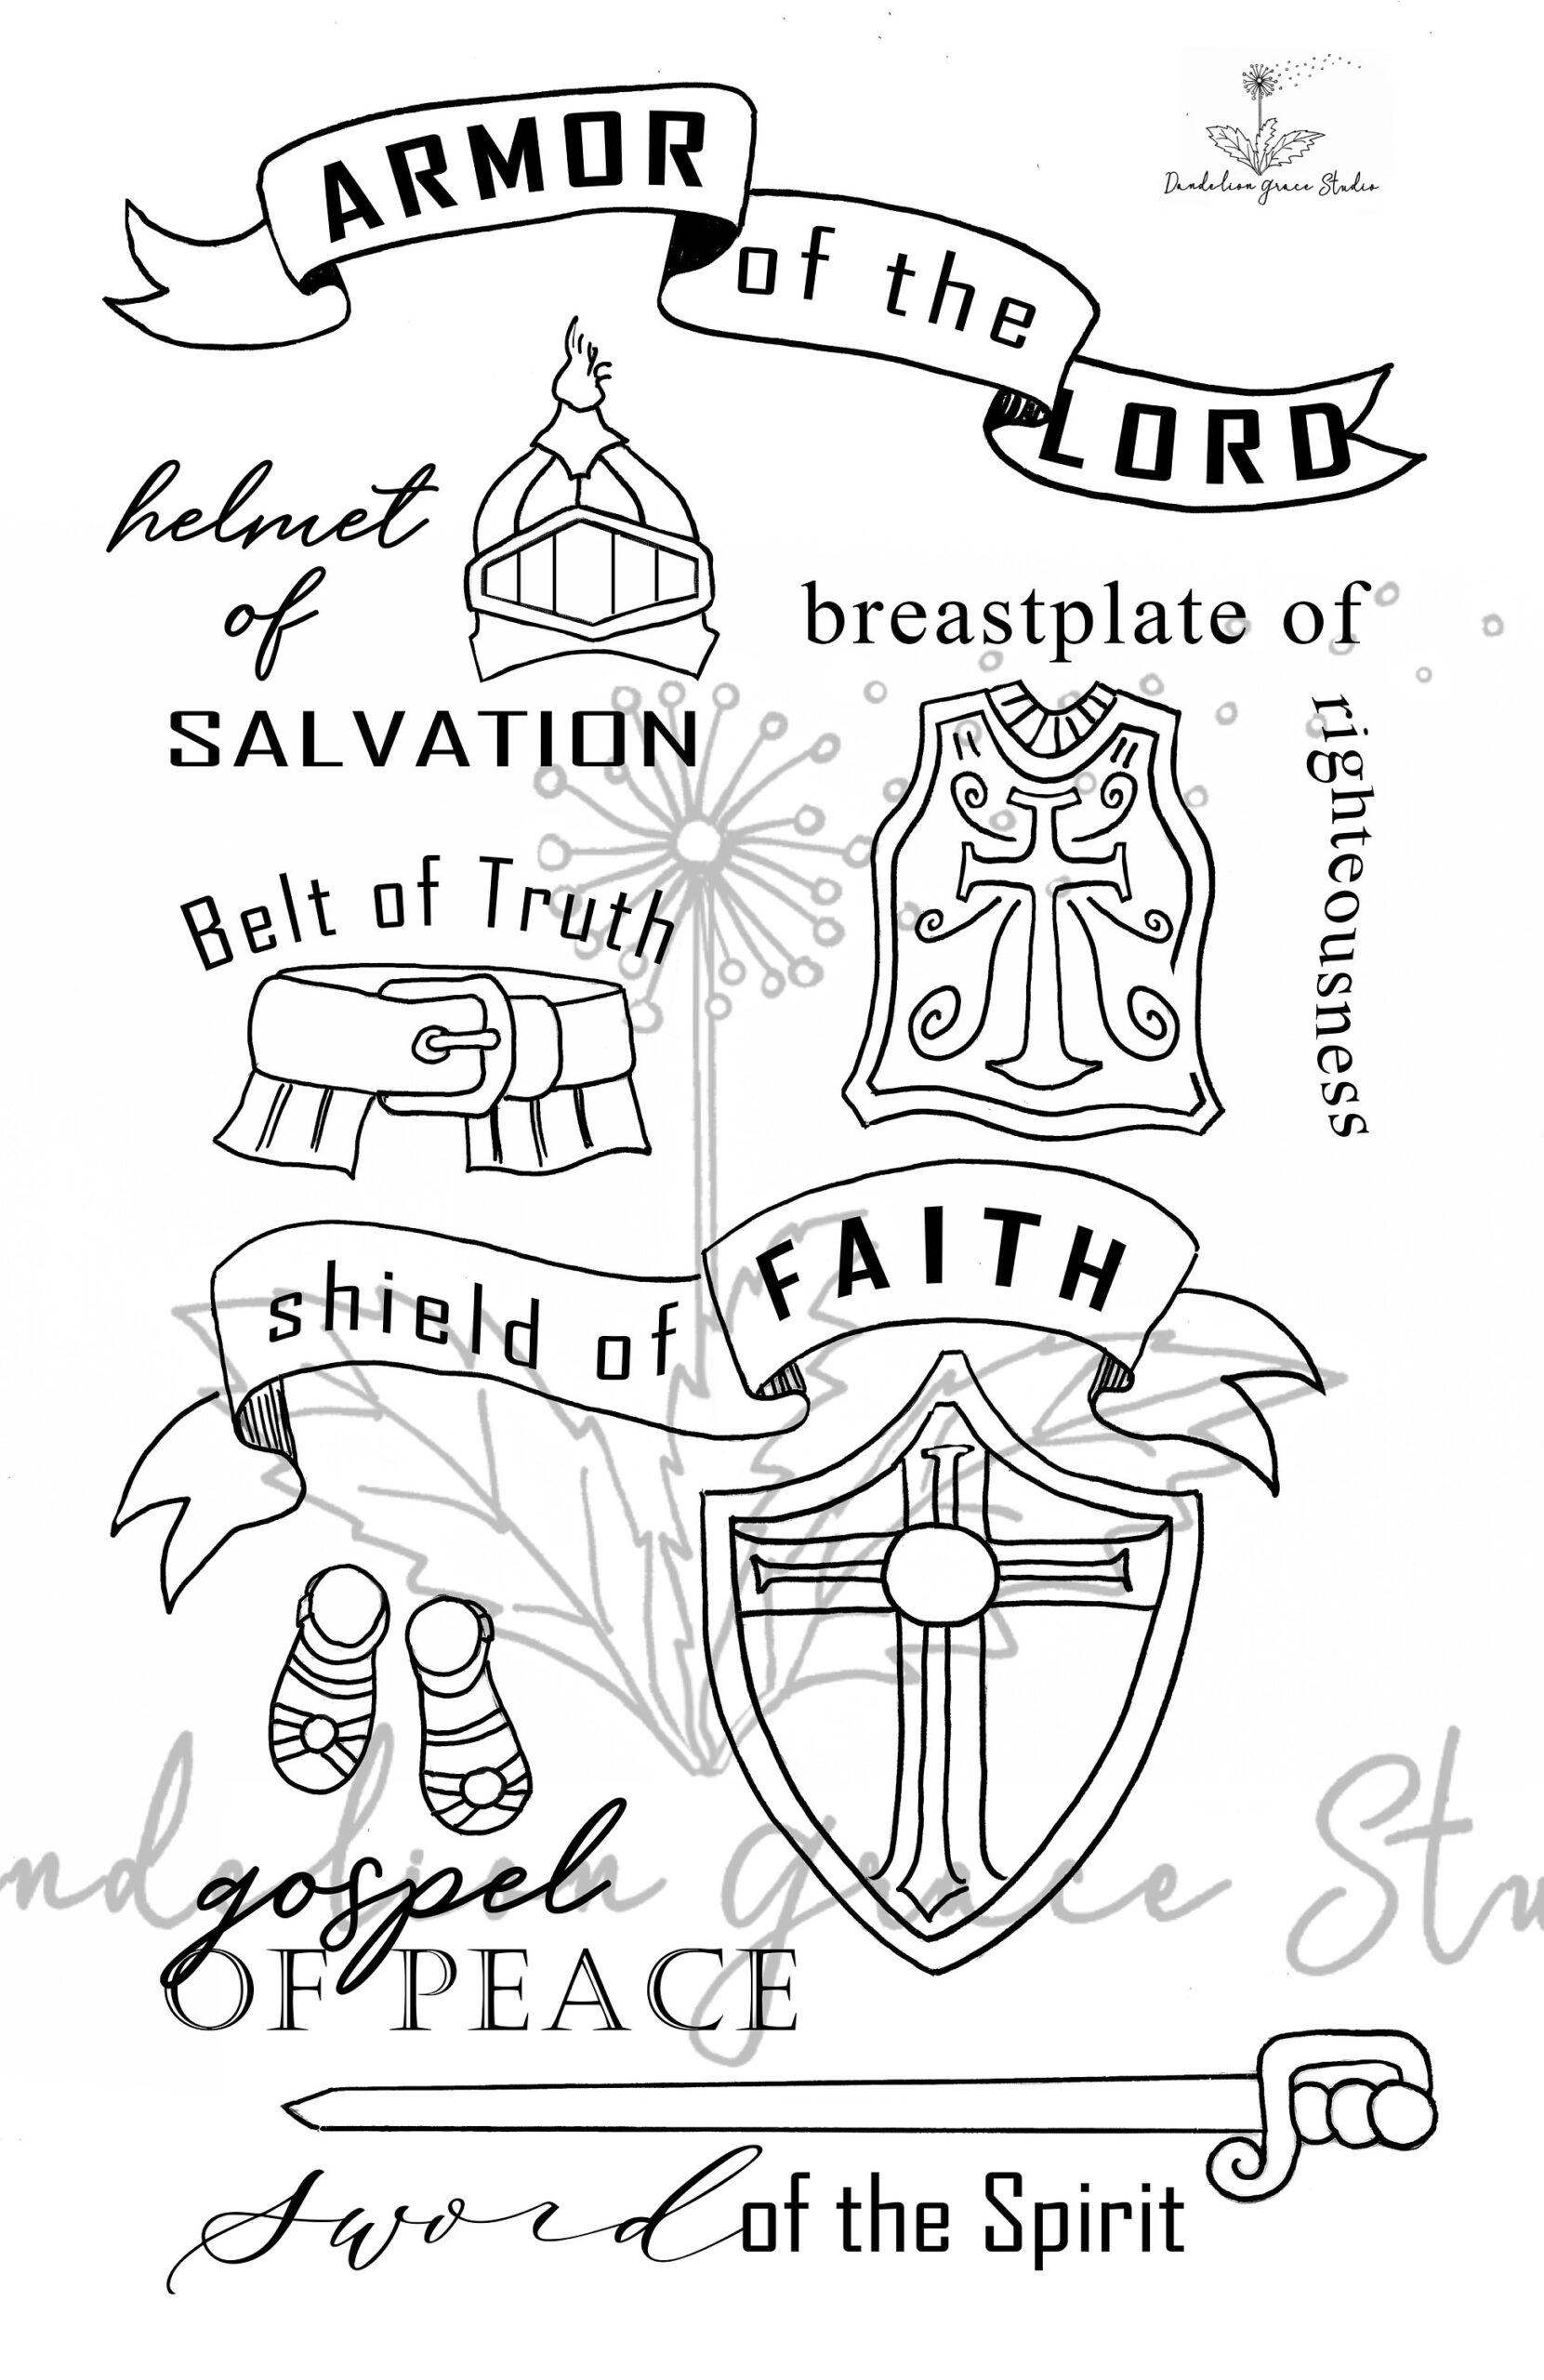 ARMOR
of the
LORD
Dandelion Grace Studio
helmet
of
SALVATION
breastplate of
righteousness
Belt of Truth
shield of
FAITH
gospel
OF PEACE
ndelion Grace Stu
sword of the Spirit